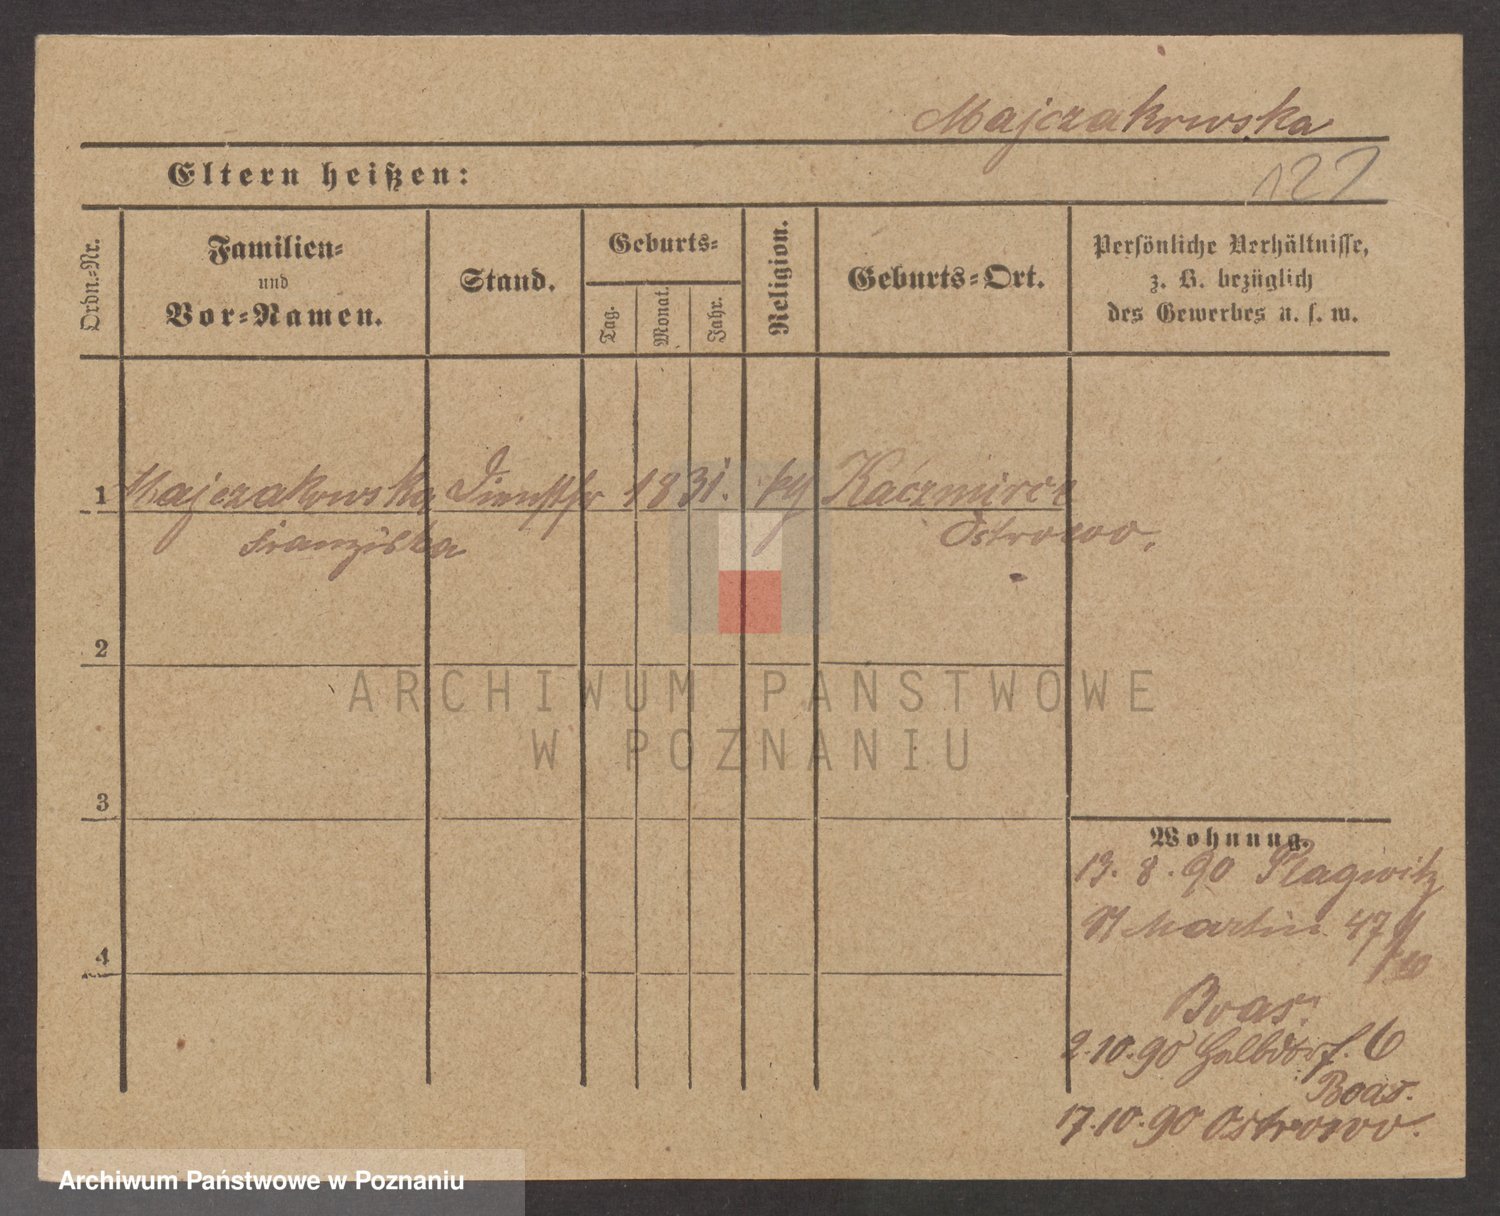 Majczakowska
122
Eltern heißen:
Ordn.-Nr.
Familien-
und
Vor-Namen.
Stand.
Geburts-
Tag.
Monat.
Jahr.
Religion.
Geburts-Ort.
Persönliche Verhältnisse,
z. B. bezüglich
des Gewerbes u. s. w.
1 Majczakowska Dienstfr 1831. kg Kaczmircz
Franziska Ostrowo.
2
ARCHIWUM PAŃSTWOWE
W POZNANIU
3
Wohnung.
13. 8. 90 Plagwitz
St Martin 47
Boas.
4
2.10.90 Halbdorf. 6
Boas.
17.10.90 Ostrowo.
Archiwum Państwowe w Poznaniu